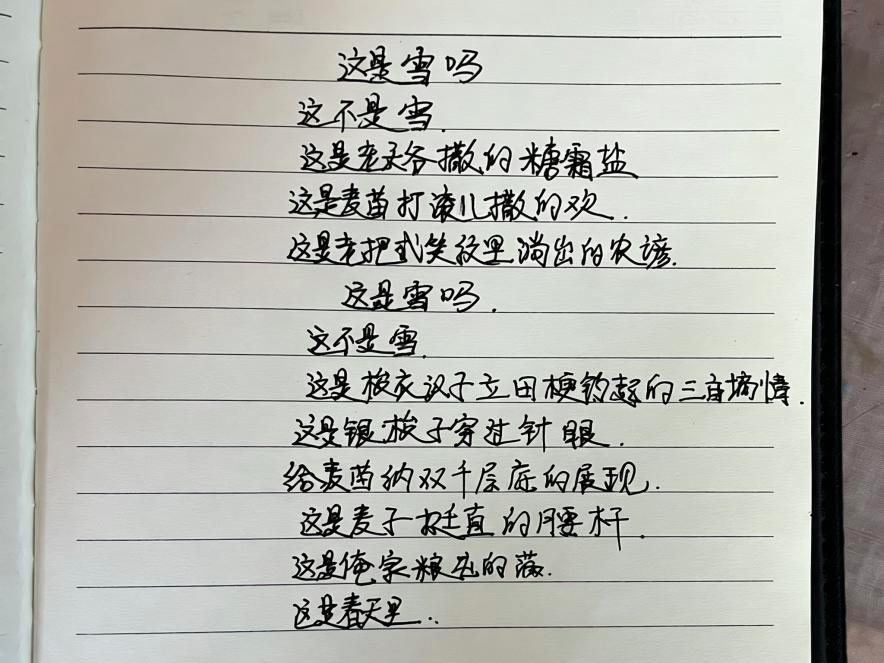 这是雪吗
这不是雪.
这是老天爷撒的糖霜盐
这是麦苗打滚儿撒的欢.
这是老把式笑纹里淌出的农谚.
这是雪吗.
这不是雪.
这是梭衣汉子立田梗钓起的三亩墒情.
这是银梭子穿过针眼.
给麦苗纳双千层底的展现.
这是麦子挺直的腰杆.
这是俺家粮屯的藏.
这是春天里..